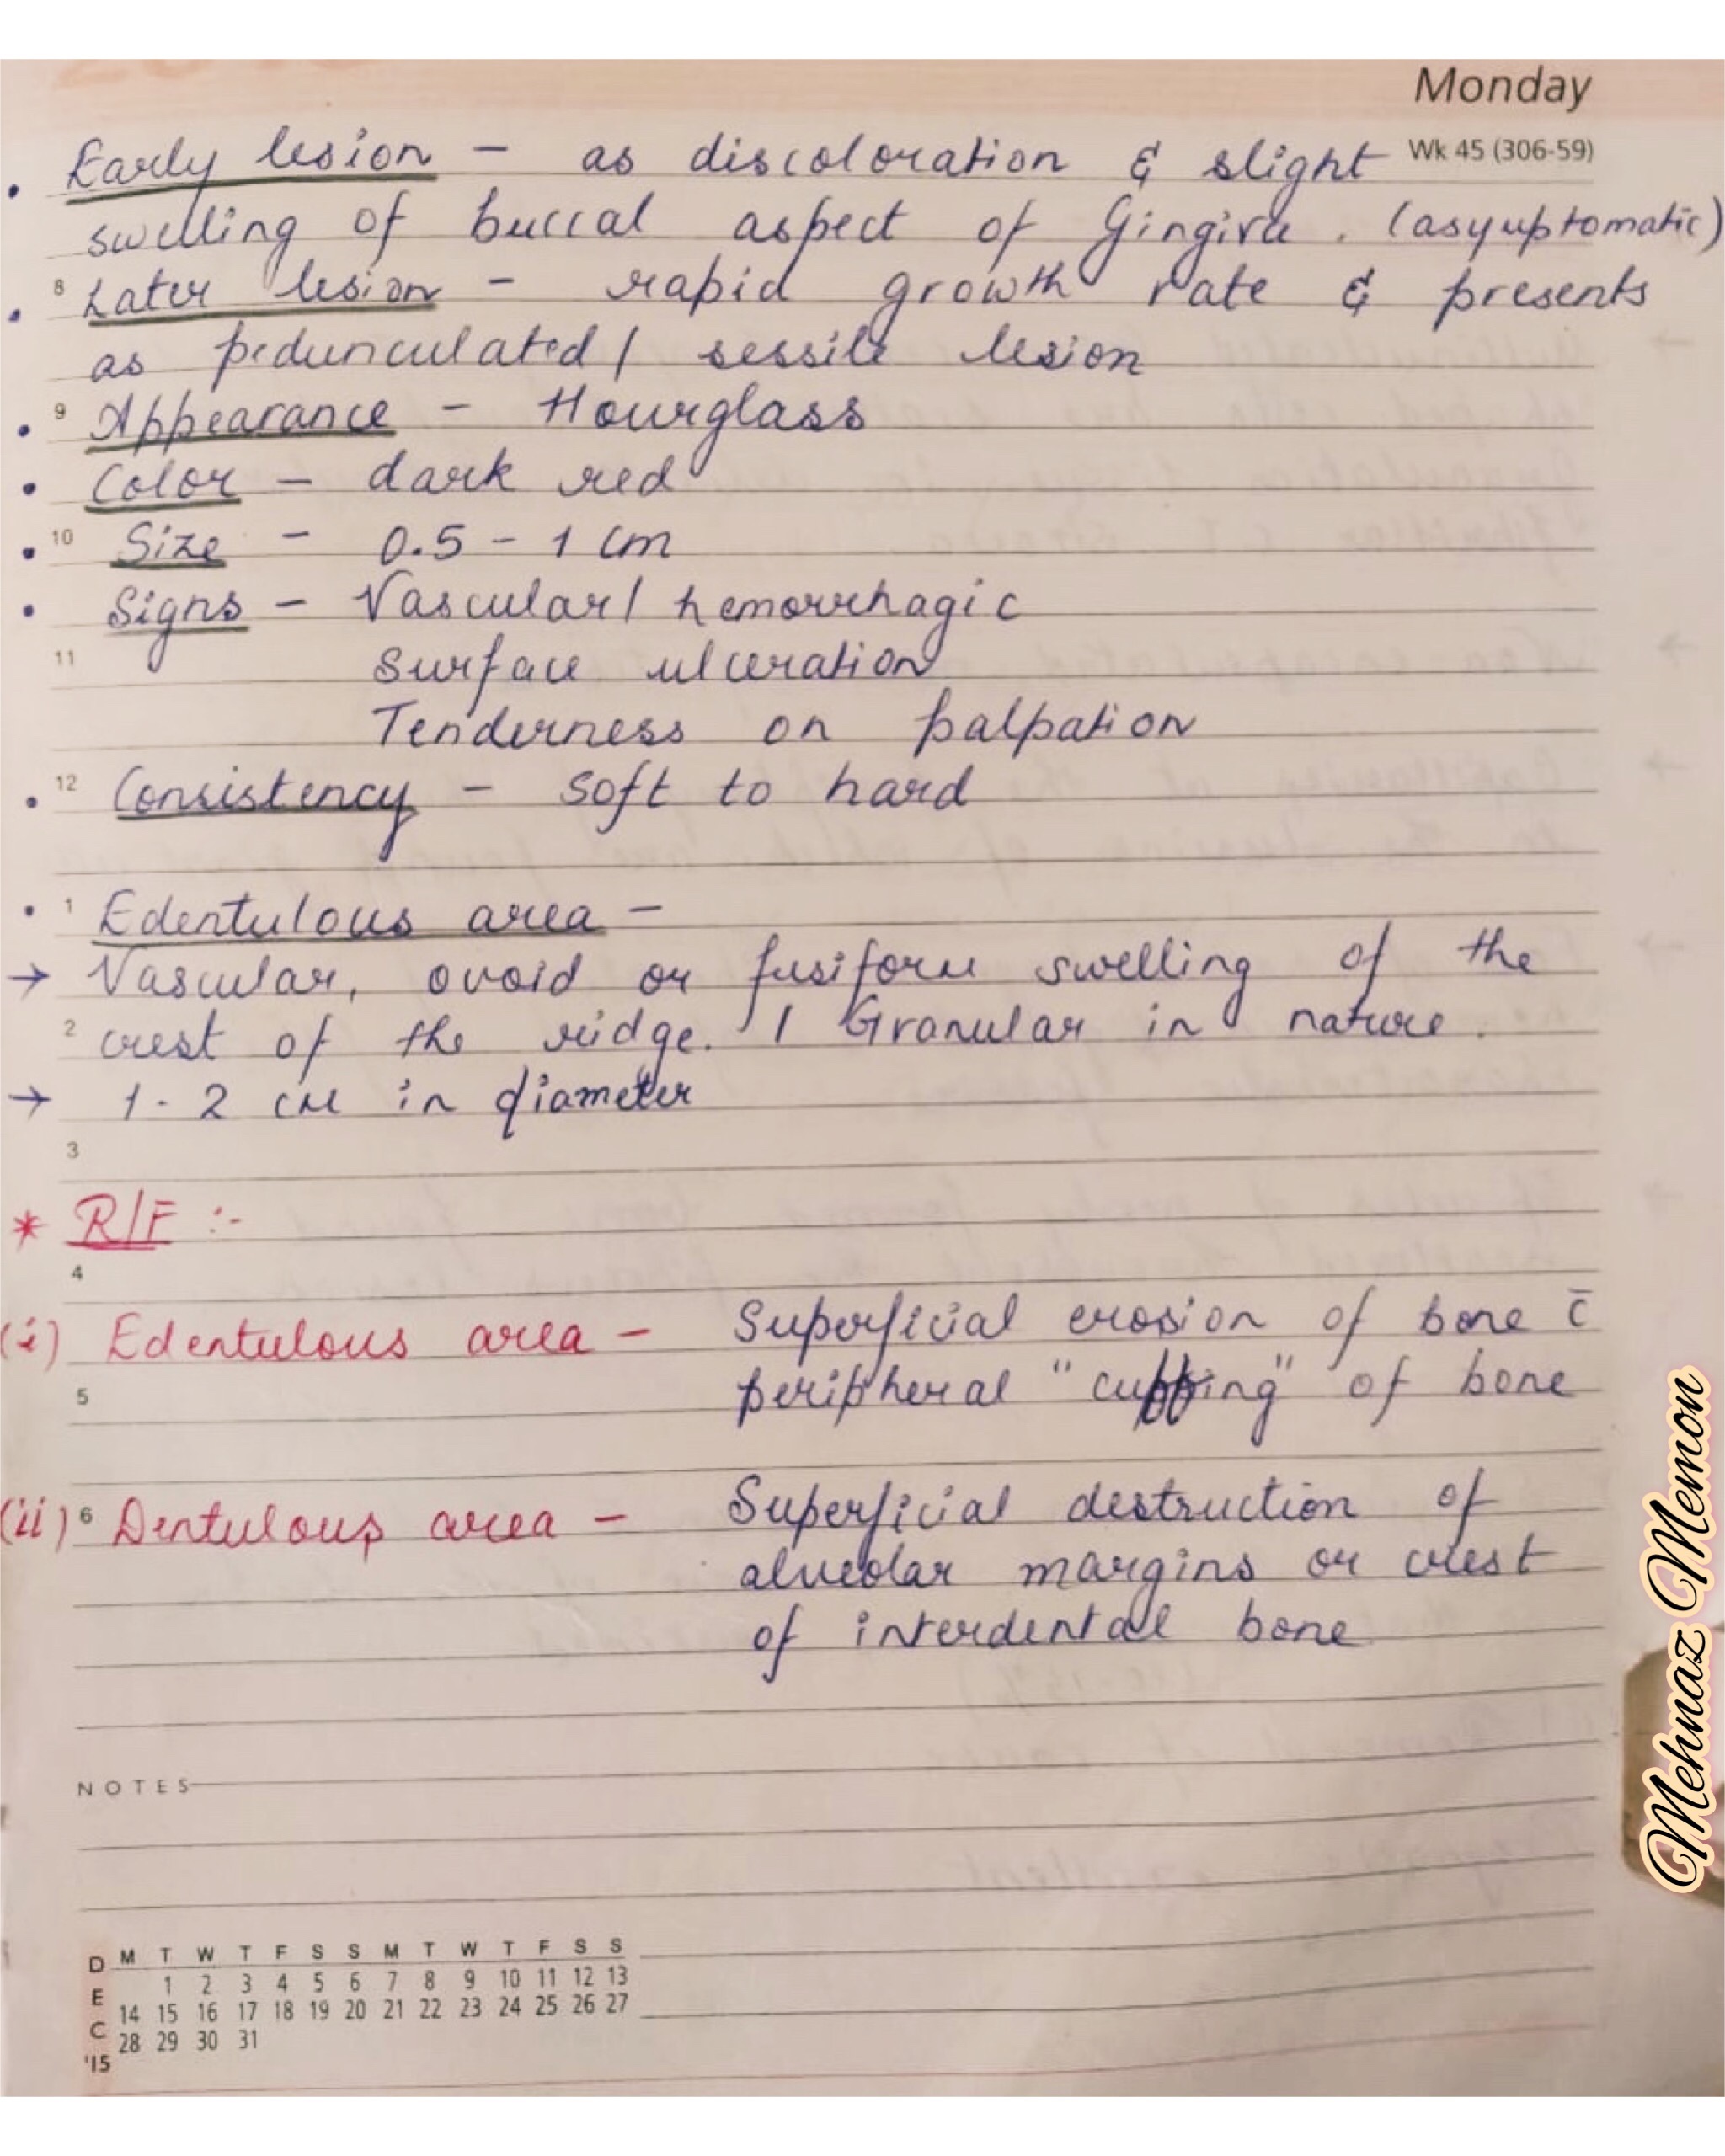 Monday
Wk 45 (306-59)
• Early lesion - as discoloration & slight
swelling of buccal aspect of Gingiva. (asymptomatic)
8
• Later lesion - rapid growth rate & presents
as pedunculated / sessile lesion
9
• Appearance - Hourglass
• Color - dark red
10
• Size - 0.5 - 1 cm
• Signs - Vascular / hemorrhagic
11
Surface ulceration
Tenderness on palpation
12
• Consistency - soft to hard
1
• Edentulous area -
→ Vascular, ovoid or fusiform swelling of the
2
crest of the ridge. / Granular in nature.
→ 1-2 cm in diameter
3
* R/F :-
4
(i) Edentulous area - Superficial erosion of bone c̄
5
peripheral "cupping" of bone
6
(ii) Dentulous area - Superficial destruction of
alveolar margins or crest
of interdental bone
Mehnaz Memon
NOTES
DEC '15
M T W T F S S M T W T F S S
1 2 3 4 5 6 7 8 9 10 11 12 13
14 15 16 17 18 19 20 21 22 23 24 25 26 27
28 29 30 31